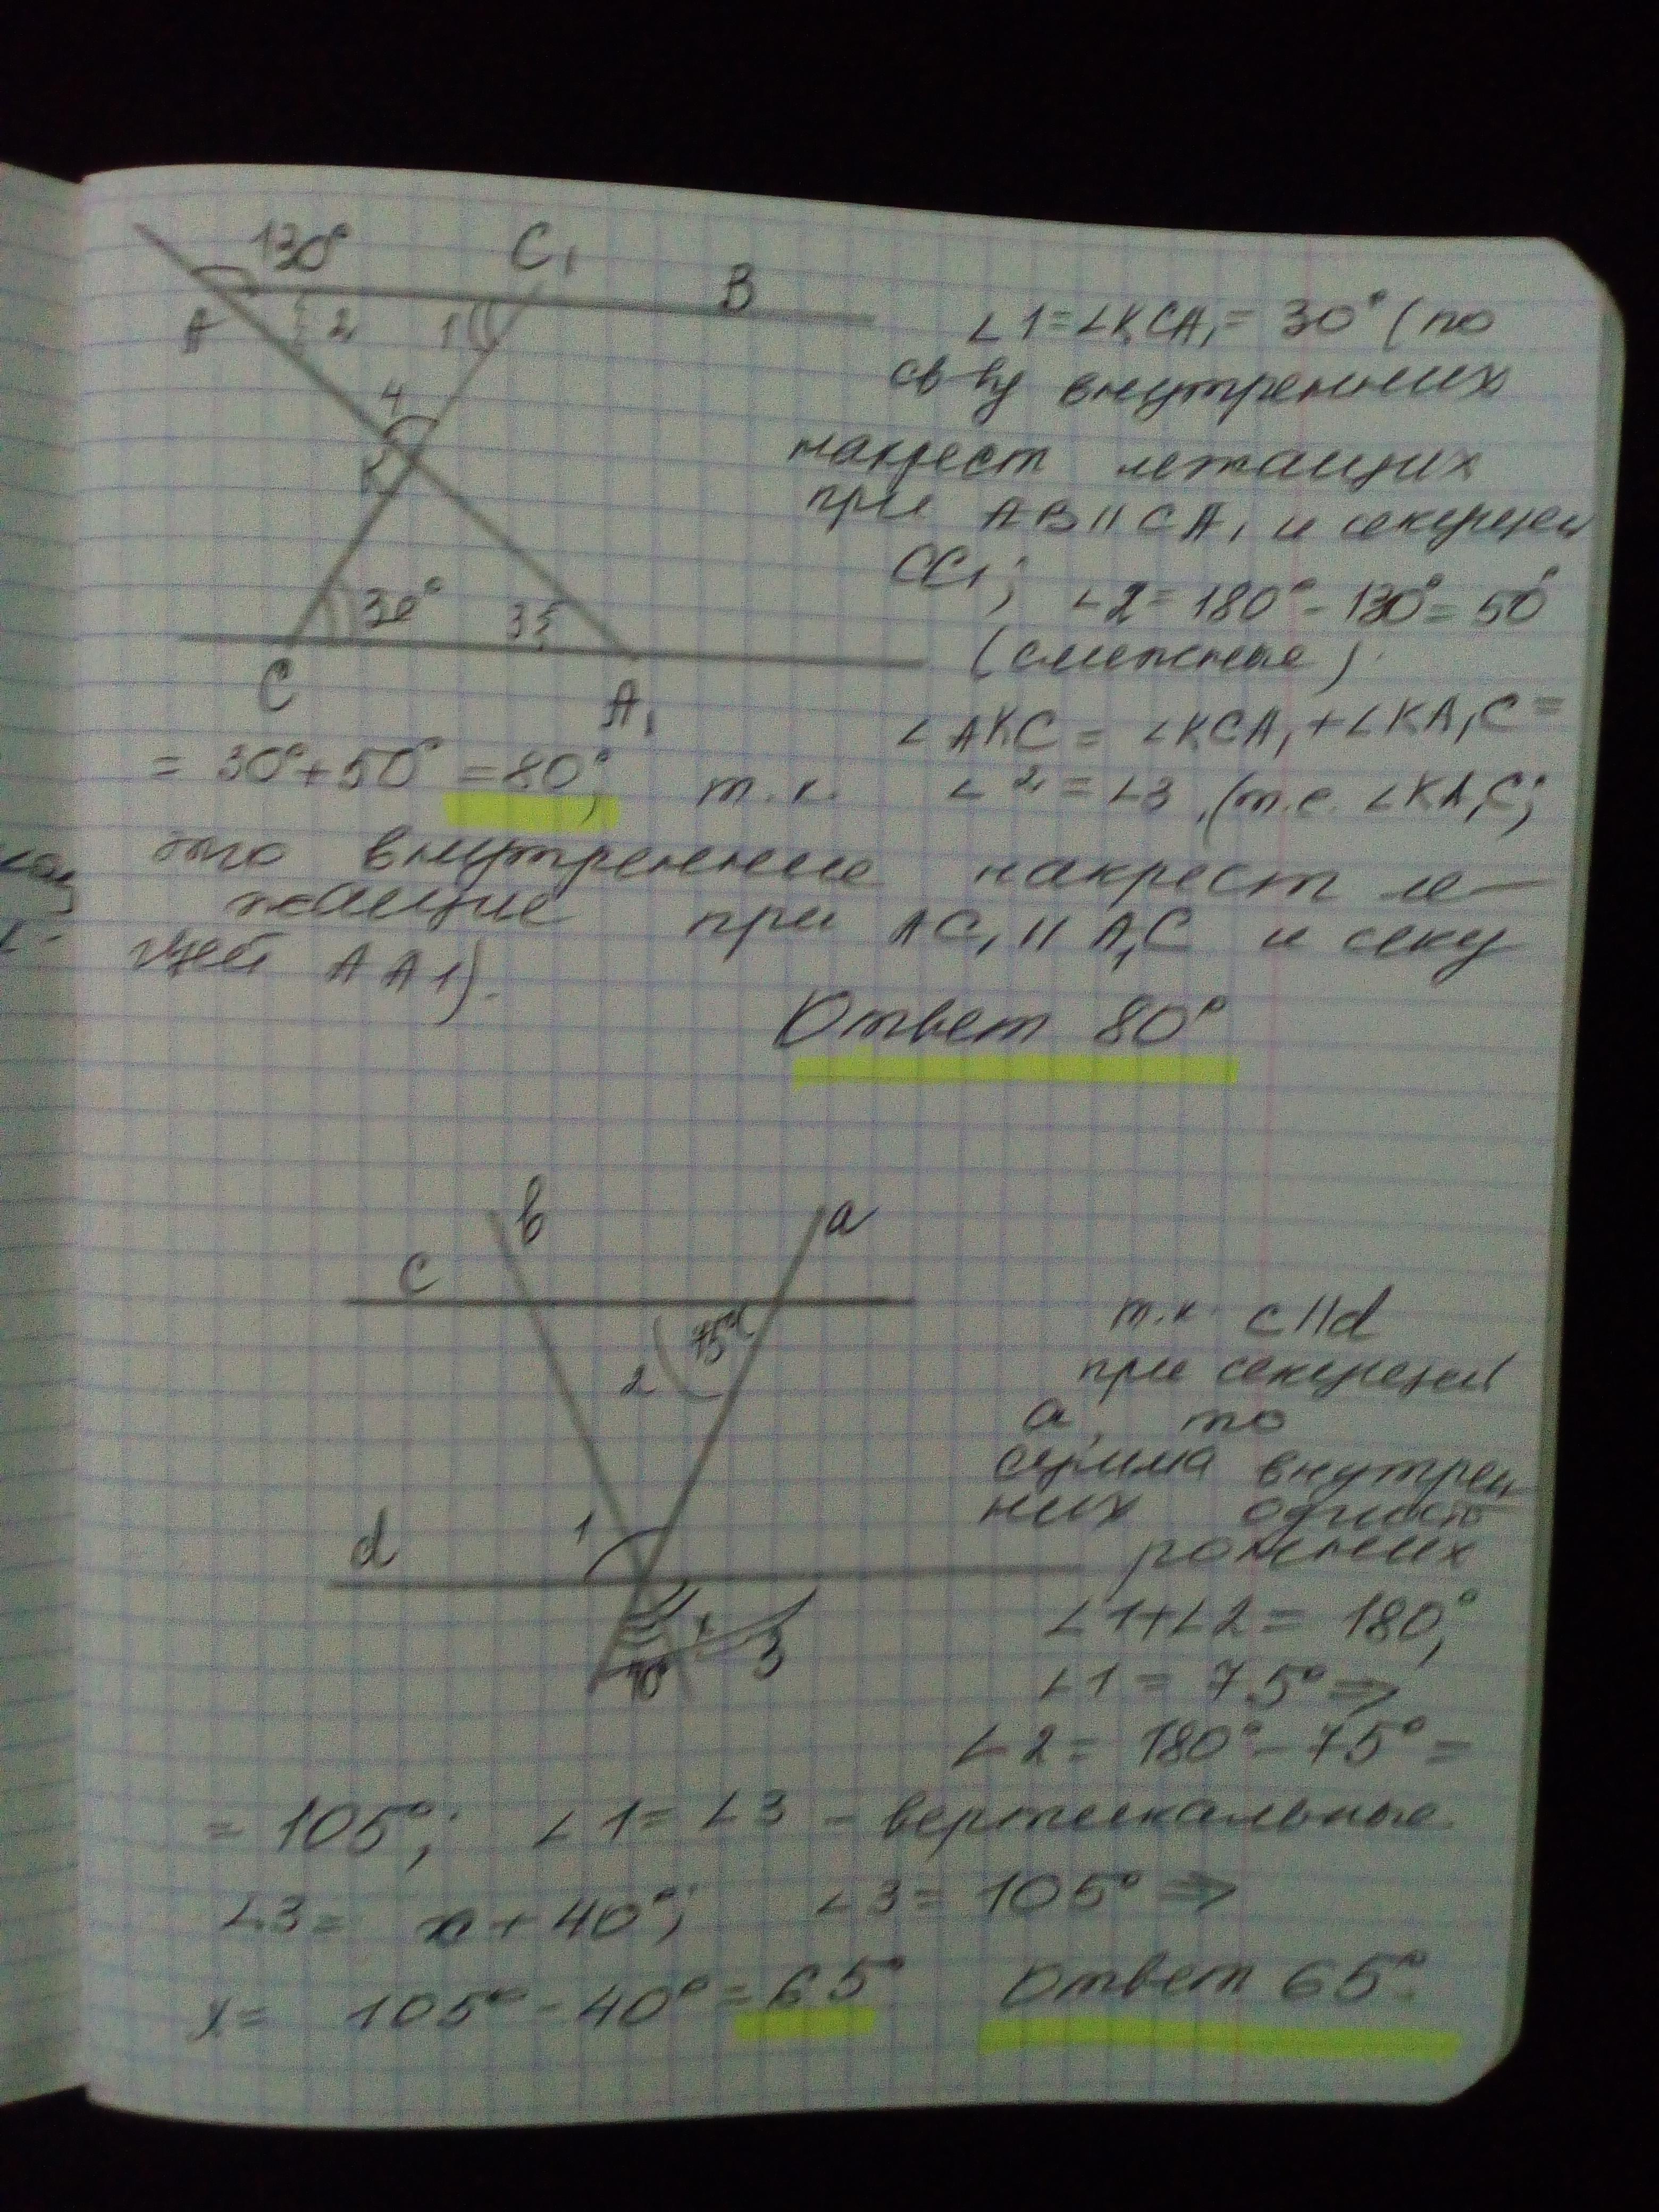 130°
C₁
B
A
2
1
∠1=∠KCA₁= 30° (по
св-ву внутренних
4
K
накрест лежащих
при AB || CA₁ и секущей
CC₁;
∠2= 180°-130°= 50°
30°
3
(смежные).
C
A₁
∠AKC = ∠KCA₁+∠KA₁C =
= 30°+50° =80°; т.к. ∠2=∠3 (т.е. ∠KA₁C;
это внутренние накрест ле-
жащие при AC₁ || A₁C и секу
щей AA1).
Ответ 80°
b
a
c
75°
2
т.к. c || d
при секущей
a, то
сумма внутрен
них одност
ронних
1
d
x
3
∠1+∠2= 180°;
∠1= 75° ⇒
∠2= 180°-75°=
= 105°; ∠1= ∠3 - вертикальные.
∠3= x+40°; ∠3= 105° ⇒
x= 105°-40°=65° Ответ 65°.